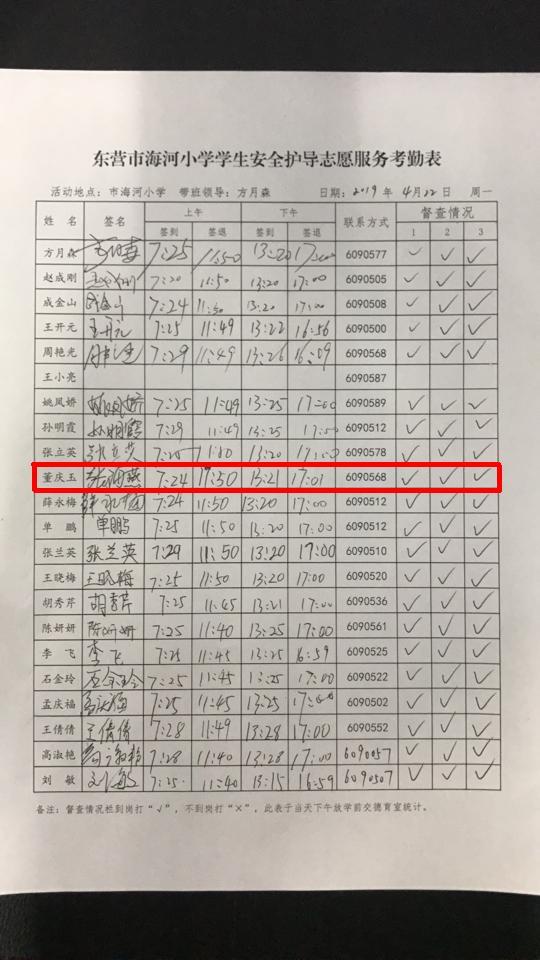 东营市海河小学学生安全护导志愿服务考勤表
活动地点：市海河小学 带班领导：方月森 日期：2019年4月22日 周一
姓名 签名 上午 下午 联系方式 督查情况
签到 签退 签到 签退 1 2 3
方月森 7:25 11:50 13:20 17:00 6090577 ✓ ✓ ✓
赵成刚 7:20 11:50 13:20 17:00 6090505 ✓ ✓ ✓
成金山 成金山 7:24 11:50 13:20 17:00 6090508 ✓ ✓ ✓
王开元 王开元 7:25 11:49 13:22 16:56 6090500 ✓ ✓ ✓
周艳光 7:29 11:49 13:26 16:09 6090568 ✓ ✓ ✓
王小亮 6090587
姚凤娇 姚凤娇 7:25 11:49 13:25 17:00 6090589 ✓ ✓ ✓
孙明霞 孙明霞 7:29 11:49 13:25 17:00 6090512 ✓ ✓ ✓
张立英 张立英 7:25 13:20 17:00 6090578 ✓ ✓ ✓
董庆玉 7:24 17:50 13:21 17:01 6090568 ✓ ✓ ✓
薛永梅 薛永梅 7:24 11:50 13:20 17:00 6090512 ✓ ✓ ✓
单鹏 单鹏 7:25 11:50 13:20 17:00 6090512 ✓ ✓ ✓
张兰英 张兰英 7:29 11:50 13:20 17:00 6090510 ✓ ✓ ✓
王晓梅 王晓梅 7:25 11:50 13:20 17:00 6090520 ✓ ✓ ✓
胡秀芹 胡秀芹 7:25 11:45 13:21 17:00 6090536 ✓ ✓ ✓
陈妍妍 陈妍妍 7:25 11:40 13:25 17:00 6090561 ✓ ✓ ✓
李飞 李飞 7:25 11:45 13:25 16:59 6090525 ✓ ✓ ✓
石金玲 石金玲 7:25 11:45 13:25 17:00 6090522 ✓ ✓ ✓
孟庆福 孟庆福 7:25 11:45 13:25 17:00 6090502 ✓ ✓ ✓
王倩倩 王倩倩 7:28 11:49 13:28 17:00 6090552 ✓ ✓ ✓
高淑艳 高淑艳 7:28 11:40 13:28 17:00 6090057 ✓ ✓ ✓
刘敏 刘敏 7:25 11:40 13:15 16:59 6090507 ✓ ✓ ✓
备注：督查情况栏到岗打“√”，不到岗打“×”，此表于当天下午放学前交德育室统计。